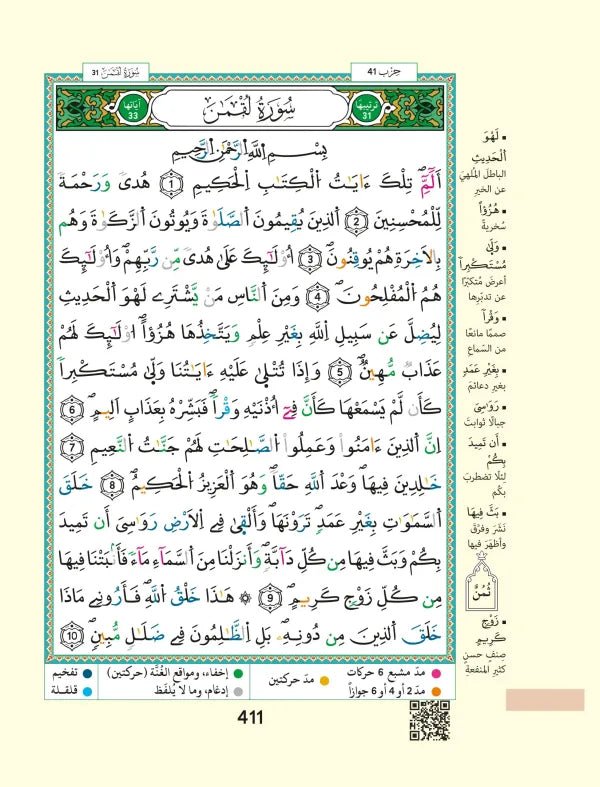 حِزْب 41
سُورَةُ لُقْمَٰنَ 31
ترتيبها 31
سُورَةُ لُقْمَٰنَ
آياتها 33
بِسْمِ اِ۬للَّهِ اِ۬لرَّحْمَٰنِ اِ۬لرَّحِيمِ
أَلَٓمِّٓۖ تِلْكَ ءَايَٰتُ اُ۬لْكِتَٰبِ اِ۬لْحَكِيمِ 1 هُدىٗ وَرَحْمَةٗ
لِّلْمُحْسِنِينَ 2 اَ۬لذِينَ يُقِيمُونَ اَ۬لصَّلَوٰةَ وَيُوتُونَ اَ۬لزَّكَوٰةَ وَهُم
بِالَاخِرَةِ هُمْ يُوقِنُونَۖ 3 أُوْلَٰٓئِكَ عَلَىٰ هُدىٗ مِّن رَّبِّهِمْۖ وَأُوْلَٰٓئِكَ
هُمُ اُ۬لْمُفْلِحُونَۖ 4 وَمِنَ اَ۬لنَّاسِ مَنْ يَّشْتَرِے لَهْوَ اَ۬لْحَدِيثِ
لِيُضِلَّ عَن سَبِيلِ اِ۬للَّهِ بِغَيْرِ عِلْمٖ وَيَتَّخِذُهَا هُزُؤاًۖ اُوْلَٰٓئِكَ لَهُمْ
عَذَابٞ مُّهِينٞۖ 5 وَإِذَا تُتْلَىٰ عَلَيْهِ ءَايَٰتُنَا وَلَّىٰ مُسْتَكْبِراٗ
كَأَن لَّمْ يَسْمَعْهَا كَأَنَّ فِےٓ أُذْنَيْهِ وَقْراٗۖ فَبَشِّرْهُ بِعَذَابٍ اَلِيمٍۖ 6
اِنَّ اَ۬لذِينَ ءَامَنُواْ وَعَمِلُواْ اُ۬لصَّٰلِحَٰتِ لَهُمْ جَنَّٰتُ اُ۬لنَّعِيمِ 7
خَٰلِدِينَ فِيهَا وَعْدَ اَ۬للَّهِ حَقّاٗۖ وَهُوَ اَ۬لْعَزِيزُ اُ۬لْحَكِيمُۖ 8 خَلَقَ
اَ۬لسَّمَٰوَٰتِ بِغَيْرِ عَمَدٖ تَرَوْنَهَاۖ وَأَلْقَىٰ فِے اِ۬لَارْضِ رَوَٰسِيَ أَن تَمِيدَ
بِكُمْ وَبَثَّ فِيهَا مِن كُلِّ دَآبَّةٖۖ وَأَنزَلْنَا مِنَ اَ۬لسَّمَآءِ مَآءٗ فَأَنۢبَتْنَا فِيهَا
مِن كُلِّ زَوْجٖ كَرِيمٍۖ 9 ۞ هَٰذَا خَلْقُ اُ۬للَّهِۖ فَأَرُونِے مَاذَا
خَلَقَ اَ۬لذِينَ مِن دُونِهِۦۖ بَلِ اِ۬لظَّٰلِمُونَ فِے ضَلَٰلٖ مُّبِينٖۖ 10
• لَهْوَ
اَ۬لْحَدِيثِ
الباطلَ المُلْهِيَ
عن الخيرِ
• هُزُؤاً
سُخريةً
• وَلَّىٰ
مُسْتَكْبِراٗ
أعرضَ مُتكبّرًا
عن تدبّرِها
• وَقْراٗ
صممًا مانعًا
من السّماعِ
• بِغَيْرِ عَمَدٖ
بغيرِ دعائمَ
• رَوَٰسِيَ
جبالًا ثوابتَ
• أَن تَمِيدَ
بِكُمْ
لئلّا تضطربَ
بكم
• بَثَّ فِيهَا
نَشَرَ وفرّقَ
وأظهَرَ فيها
ثُمُنٌ
• زَوْجٖ
كَرِيمٍ
صِنفٍ حسنٍ
كثيرِ المنفعةِ
مدّ مشبع 6 حركات
مدّ حركتين
إخفاء، ومواقع الغُنَّة (حركتين)
تفخيم
مدّ 2 أو 4 أو 6 جوازاً
إدغام، وما لا يُلفَظ
قلقلة
411